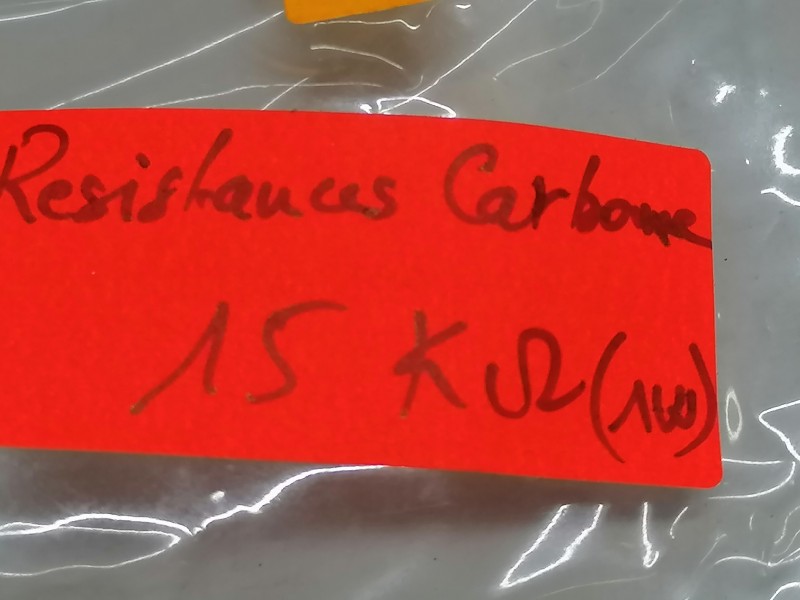 Resistances Carbone
15 KΩ (1W)